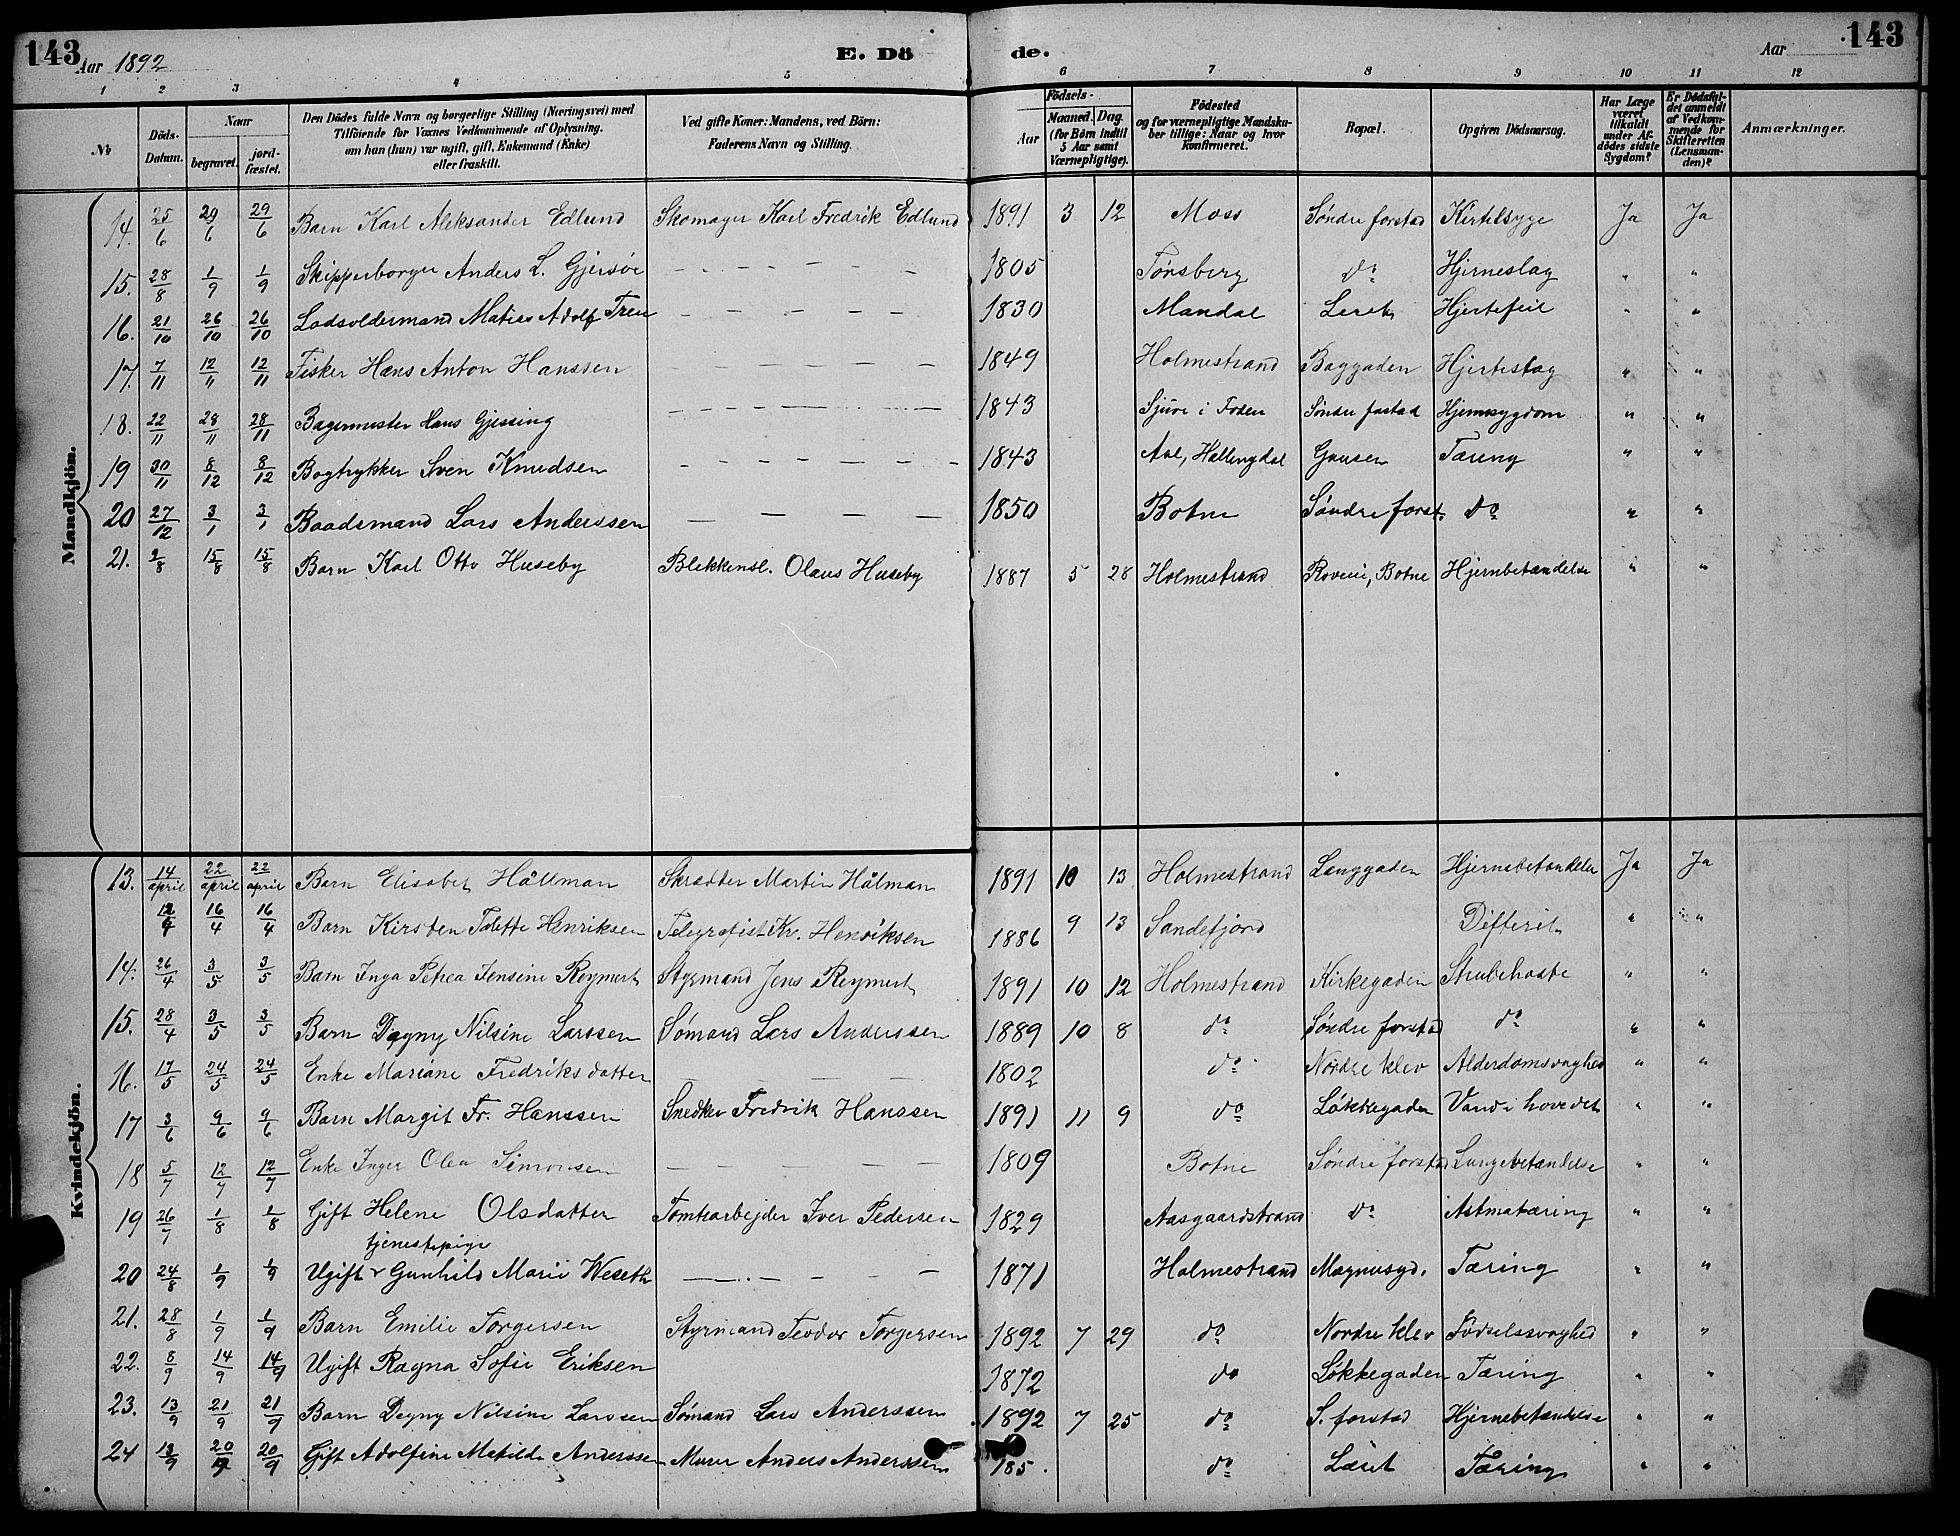 143 Aar 1892 E. Dö de. Aar 143
1 2 3 4 5 6 7 8 9 10 11 12
No Döds-Datum. Naar begravet. jord-fæstet. Den Dödes fulde Navn og borgerlige Stilling (Næringsvei) med Tilföiende for Voxnes Vedkommende af Oplysning, om han (hun) var ugift, gift, Enkemand (Enke) eller fraskilt. Ved gifte Koner: Mandens, ved Börn: Faderens Navn og Stilling. Födsels- Aar Maaned. Dag. (for Börn indtil 5 Aar samt Værnepligtige). Födested og for værnepligtige Mandskaber tillige: Naar og hvor konfirmeret. Bopæl. Opgiven Dödsaarsag. Har Læge været tilkaldt under Afdödes sidste Sygdom? Er Dödsfaldet anmeldt af Vedkommende for Skifteretten (Lensmanden)? Anmærkninger.
Mandkjön.
14. 25/6 29/6 29/6 Barn Karl Aleksander Edlund Skomager Karl Fredrik Edlund 1891 3 12 Moss Søndre forstad Kirtelsyge Ja Ja
15. 28/8 1/9 1/9 Skipperborger Anders L. Gjersøe — — — — 1805 Tønsberg do Hjerneslag " "
16. 21/10 26/10 26/10 Lodsoldermand Matias Adolf 1830 Mandal Hjertefeil " "
17. 7/11 12/11 12/11 Fisker Hans Anton Hanssen — — — — — 1849 Holmestrand Baggaden Hjerteslag " "
18. 22/11 28/11 28/11 Bagermester Hans Gjessing — — — — — 1843 Søndre forstad " "
19 30/11 8/12 8/12 Bogtrykker Sven Knudsen — — — — — 1843 Aal, Hallingdal Gausen Tæring " "
20 27/12 3/1 3/1 Baadsmand Lars Anderssen — — — — 1850 Botne Søndre forst. do " "
21. 9/8 15/8 15/8 Barn Karl Otto Huseby Blikkensl. Olaus Huseby 1887 5 28 Holmestrand Botne Hjernbetændelse " "
Kvindekjön.
13. 14/april 22/april 22/april Barn Elisabet Hållman Skrædder Martin Hålman 1891 10 13 Holmestrand Langgaden Hjernebetændelse Ja Ja
12/4 16/4 16/4 Barn Kirsten Henriksen Telegrafist Kr. Henriksen 1886 9 13 Sandefjord Difterit " "
14. 26/4 3/5 3/5 Barn Inga Petrea Jensine Reymert Styrmand Jens Reymert 1891 10 12 Holmestrand Kirkegaden Strubehoste " "
15. 28/4 3/5 3/5 Barn Dagny Nilsine Larssen Sømand Lars Anderssen 1889 10 8 do Søndre forstad do " "
16. 17/5 24/5 24/5 Enke Mariane Fredriksdatter — — — 1802 do Nordre klev Alderdomsvaghed " "
17 3/6 9/6 9/6 Barn Margit Fr. Hanssen Snedker Fredrik Hanssen 1891 11 9 do Løkkegaden Vand i hovedet " "
18 5/7 12/7 12/7 Enke Inger Olea Simonsen — — — — — 1809 Botne Søndre forstad Lungebetændelse " "
19 26/7 1/8 1/8 Gift Helene Olsdatter Tomtearbejder Iver Pedersen 1829 Aasgaardstrand do Astmatæring " "
tjenestepige
20 24/8 1/9 1/9 Ugift Gunhild Marie Weseth — — — — 1871 Holmestrand Magnusgd. Tæring " "
21. 28/8 1/9 1/9 Barn Emilie Torgersen Styrmand Teodor Torgersen 1892 7 29 do Nordre klev Fødselssvaghed " "
22. 8/9 14/9 14/9 Ugift Ragna Sofie Eriksen 1872 do Løkkegaden Tæring " "
23. 13/9 21/9 21/9 Barn Dagny Nilsine Larssen Sømand Lars Anderssen 1892 7 25 do S. forstad Hjernebetændelse " "
24 13/9 20/9 20/9 Gift Adolfine Matilde Anderssen Murer Anders Anderssen 185 do Læret Tæring " "